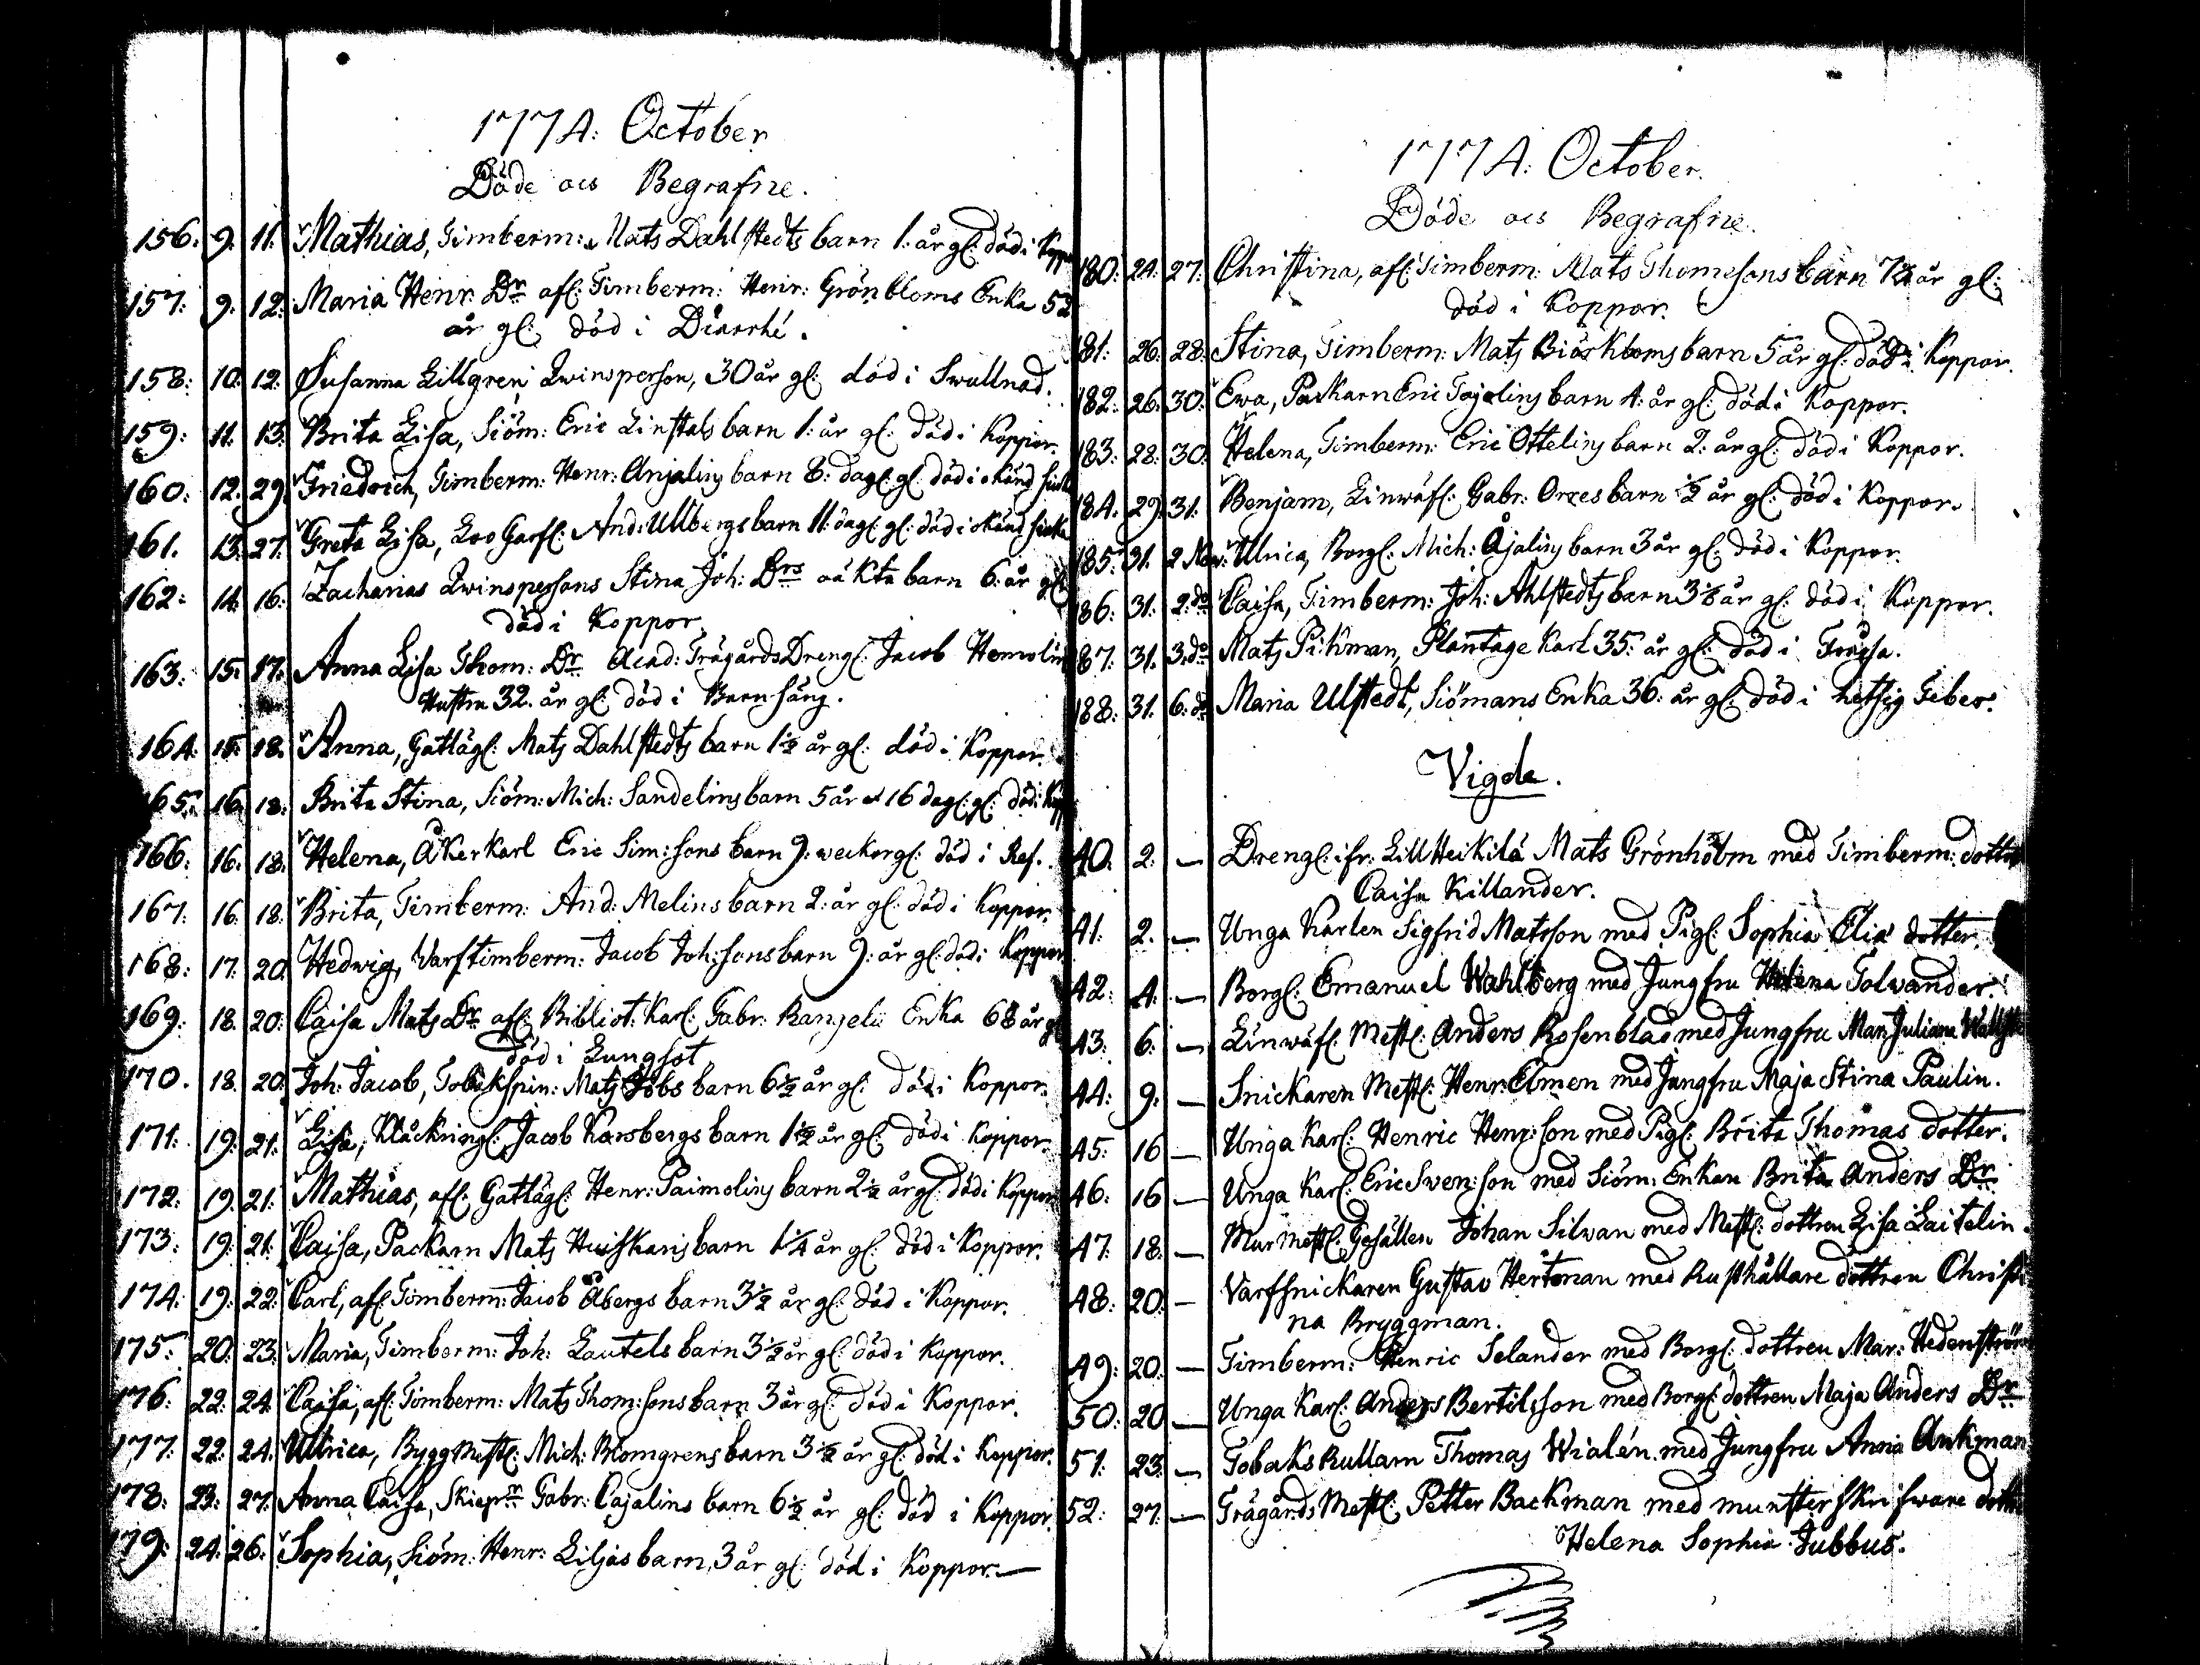 1774: October
Döde och Begrafne.
156: 9. 11. Mathias, Timberm: Mats Dahlstedts barn 1: år gl: död i Kopp
157: 9. 12: Maria Henr: Dr afl: Timberm: Henr: Grönbloms Enka 52
år gl: död i Diarrhé.
158: 10. 12: Susanna Lillgren, Qwinsperson, 30 år gl: död i Swullnad.
159: 11. 13: Brita Lisa, Siöm: Eric Linstals barn 1: år gl: död i Koppor.
160: 12. 29. Friedrich, Timberm: Henr: Anjelins barn 8: dag: gl: död i okänd
161. 13. 27. Greta Lisa, And: Ullbergs barn 11: dag: gl: död i okänd
162: 14. 16: Zacharias Qwinspersons Stina Joh: Drs oäkta barn 6: år gl:
död i Koppor.
163: 15. 17. Anna Lisa Thom: Dr Acad: TrägårdsDreng: Jacob Homolin
Hustru 32. år gl: död i Barnsäng.
164: 15. 18. Anna, Gatläg: Mats Dahlstedts barn 1½ år gl: död i Koppor.
165. 16. 18: Brita Stina, Siöm: Mich: Sandelins barn 5 år 16 dag: gl: död i Kop
166: 16. 18. Helena, Åkerkarl Eric Sim:sons barn 9: weckor gl: död i Ref.
167: 16. 18. Brita, Timberm: And: Melins barn 2: år gl: död i Koppor.
168: 17. 20. Hedwig, Varftimberm: Jacob Joh:sons barn 9: år gl: död i Koppor
169: 18. 20: Caisa Mats Dr afl: Bibliot: Karl: Gabr: Rangelii Enka 68 år gl
död i Lungsot
170. 18. 20. Joh: Jacob, Tobakspin: Mats Jobs barn 6½ år gl: död i Koppor.
171: 19: 21: Lisa, Kläckring: Jacob Karsbergs barn 1½ år gl: död i Koppor.
172: 19. 21: Mathias, afl: Gatläg: Henr: Paimolins barn 2½ år gl: död i Koppor
173: 19: 21: Caisa, Packarn Mats barn 1¼ år gl: död i Koppor.
174: 19: 22: Carl, afl: Timberm: Jacob Åbergs barn 3½ år gl: död i Koppor.
175: 20: 23: Maria, Timberm: Joh: Lautels barn 3½ år gl: död i Koppor.
176: 22: 24 Caisa, afl: Timberm: Mats Thom:sons barn 3 år gl: död i Koppor.
177: 22: 24. Ullrica, ByggMest: Mich: Blomgrens barn 3½ år gl: död i Koppor.
178: 23: 27. Anna Caisa, Skiepr Gabr: Cajalins barn 6½ år gl: död i Koppor.
179: 24: 26. Sophia, Siöm: Henr: Liljas barn, 3 år gl: död i Koppor.
1774: October.
Döde och Begrafne.
180: 24: 27: Christina, afl: Timberm: Mats Thomesons barn år gl:
död i Koppor.
181: 26: 28: Stina, Timberm: Mats Biörkboms barn 5 år gl: död i Koppor.
182: 26. 30: Ewa, Packarn Eric Tajelins barn 4: år gl: död i Koppor.
183: 28: 30: Helena, Timberm: Eric Ottelins barn 2: år gl: död i Koppor.
184: 29: 31. Benjam, Linwäf: Gabr: Orres barn ½ år gl: död i Koppor.
185: 31. 2 Nov: Ulrica, Borg: Mich: Åjalins barn 3 år gl: död i Koppor.
186: 31: 2: do Caisa, Timberm: Joh: Ahlstedts barn 3½ år gl: död i Koppor.
187: 31. 3: do Mats Pihman, Plantage Karl 35: år gl: död i Frossa.
188: 31. 6: do Maria Ulstedt, Siömans Enka 36: år gl: död i hetsig Feber.
Vigde.
40. 2: — Dreng: ifr: LillHeikilä Mats Grönholm med Timberm: dottr
Caisa Killander.
41. 2. — Unga Karlen Sigfrid Matsson med Pig: Sophia Elia dotter.
42: 4: — Borg: Emanuel Wahlberg med Jungfru Helena Tolvander.
43: 6: — Linwäf: Mest: Anders Rosenblad med Jungfru Mar: Juliana
44: 9: — Snickaren Mest: Henr: Elmen med Jungfru Maja Stina Paulin.
45: 16 — Unga Karl: Henric Henr:son med Pig: Brita Thomas dotter.
46: 16 — Unga Karl: Eric Swen:son med Siöm: Enkan Brita Anders Dr
47: 18: — MurMest: Gesällen Johan Silwan med Mest: dottren Lisa Laitelin.
48: 20: — Varfsnickaren Gustav Hertman med Rusthållare dottren Christi
na Bryggman.
49: 20: — Timberm: Henric Selander med Borg: dottren Mar: Hedenström
50: 20 — Unga Karl: Anders Bertilsson med Borg: dottren Maja Anders Dr
51: 23 — TobaksRullarn Thomas Wialén med Jungfru Anna Ankman
52: 27: — TrägårdsMest: Petter Backman med munsterskrifware dottr
Helena Sophia Jubbus.